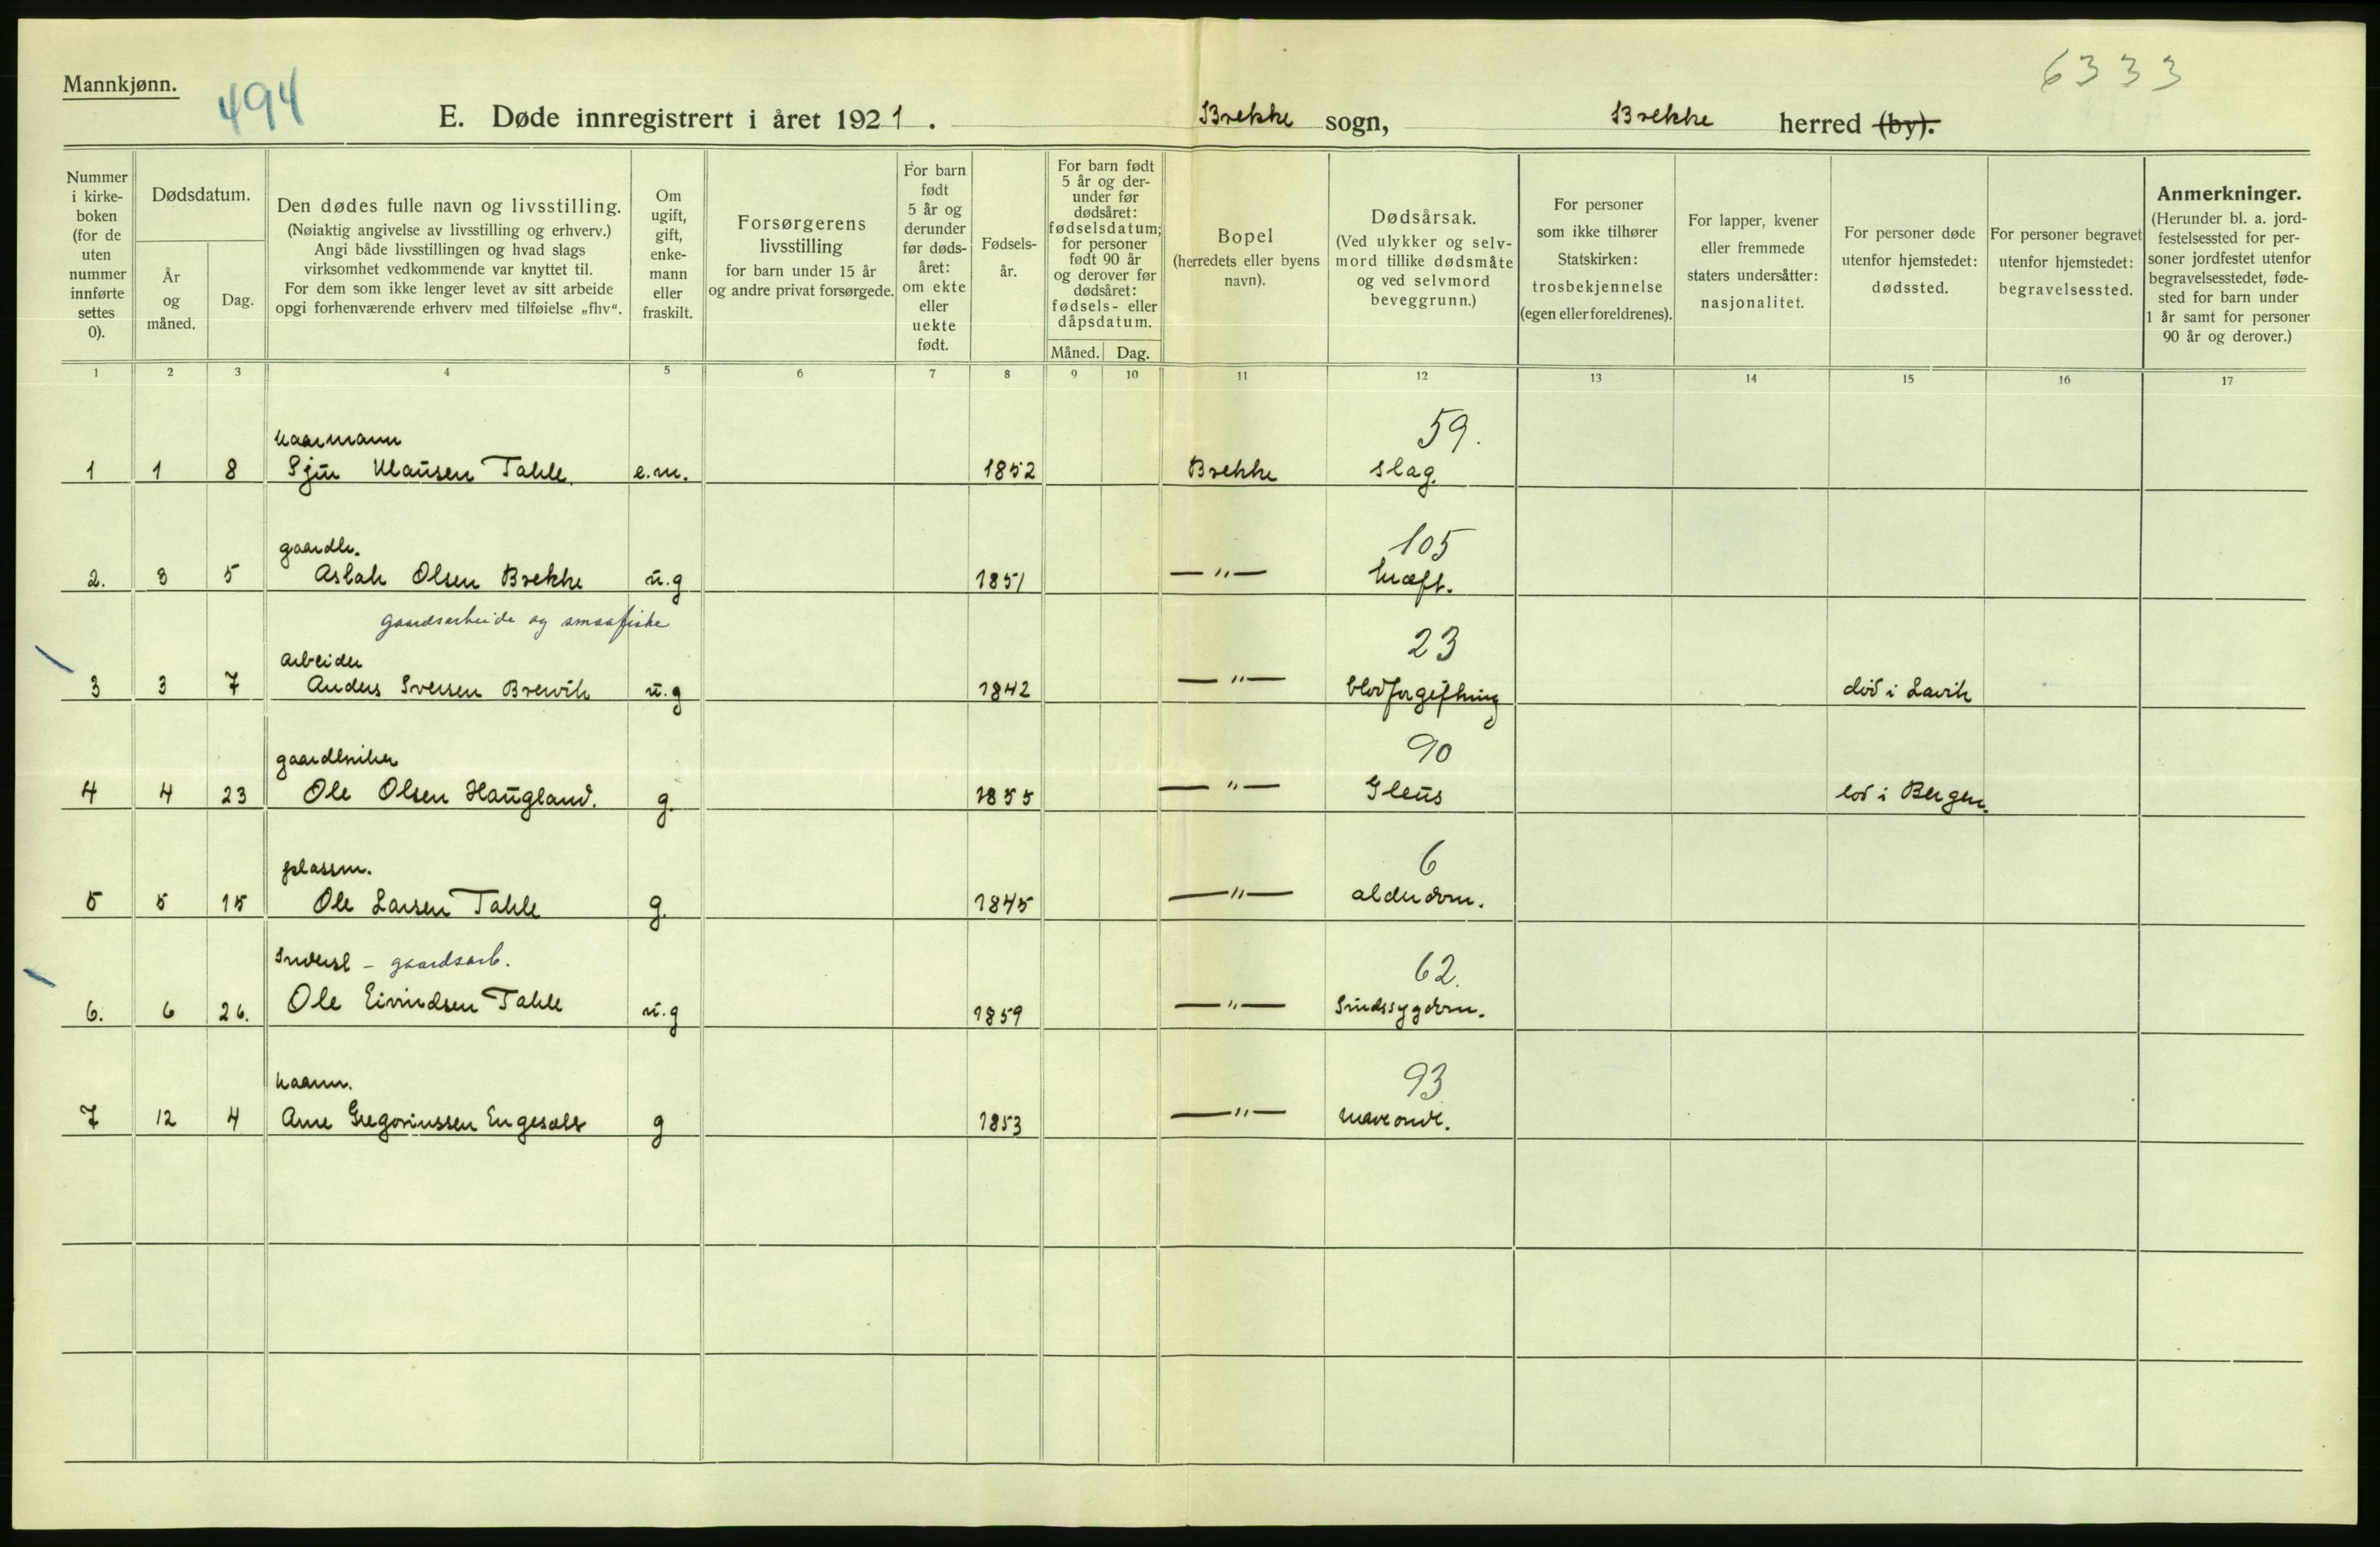 Mannkjønn.
494
6333
E. Døde innregistrert i året 1921. Brekke sogn, Brekke herred (by).
Nummer i kirkeboken (for de uten nummer innførte settes 0).
Dødsdatum.
År og måned.
Dag.
Den dødes fulle navn og livsstilling.
(Nøiaktig angivelse av livsstilling og erhverv.)
Angi både livsstillingen og hvad slags
virksomhet vedkommende var knyttet til.
For dem som ikke lenger levet av sitt arbeide
opgi forhenværende erhverv med tilføielse „fhv“.
Om ugift, gift, enkemann eller fraskilt.
Forsørgerens livsstilling
for barn under 15 år
og andre privat forsørgede.
For barn født 5 år og derunder før dødsåret: om ekte eller uekte født.
Fødselsår.
For barn født 5 år og derunder før dødsåret: fødselsdatum; for personer født 90 år og derover før dødsåret: fødsels- eller dåpsdatum.
Måned. Dag.
Bopel
(herredets eller byens navn).
Dødsårsak.
(Ved ulykker og selvmord tillike dødsmåte og ved selvmord beveggrunn.)
For personer som ikke tilhører Statskirken: trosbekjennelse (egen eller foreldrenes).
For lapper, kvener eller fremmede staters undersåtter: nasjonalitet.
For personer døde utenfor hjemstedet: dødssted.
For personer begravet utenfor hjemstedet: begravelsessted.
Anmerkninger.
(Herunder bl. a. jordfestelsessted for personer jordfestet utenfor begravelsesstedet, fødested for barn under 1 år samt for personer 90 år og derover.)
1 2 3 4 5 6 7 8 9 10 11 12 13 14 15 16 17
kaarmann 59.
1 1 8 Sjur Klausen Takle. e.m. 1852 Brekke slag.
gaardbr. 105
2. 3 5 Aslak Olsen Brekke u.g 1851 —"— kræft.
gaardsarbeide og smaafiske
arbeider 23
3 3 7 Anders Iversen Brevik u.g 1842 —"— blodforgiftning død i Lavik
gaardbruker 90
4 4 23 Ole Olsen Haugland. g. 1855 —"— Ileus død i Bergen.
plassm. 6
5 5 15 Ole Larsen Takle g. 1845 —"— alderdom.
Inderst - gaardsarb. 62.
6. 6 26. Ole Eivindsen Takle u.g 1859 —"— Sindssygdom.
kaarm. 93
7 12 4 Arne Gregoriussen Engesæter g 1853 —"— maveonde.